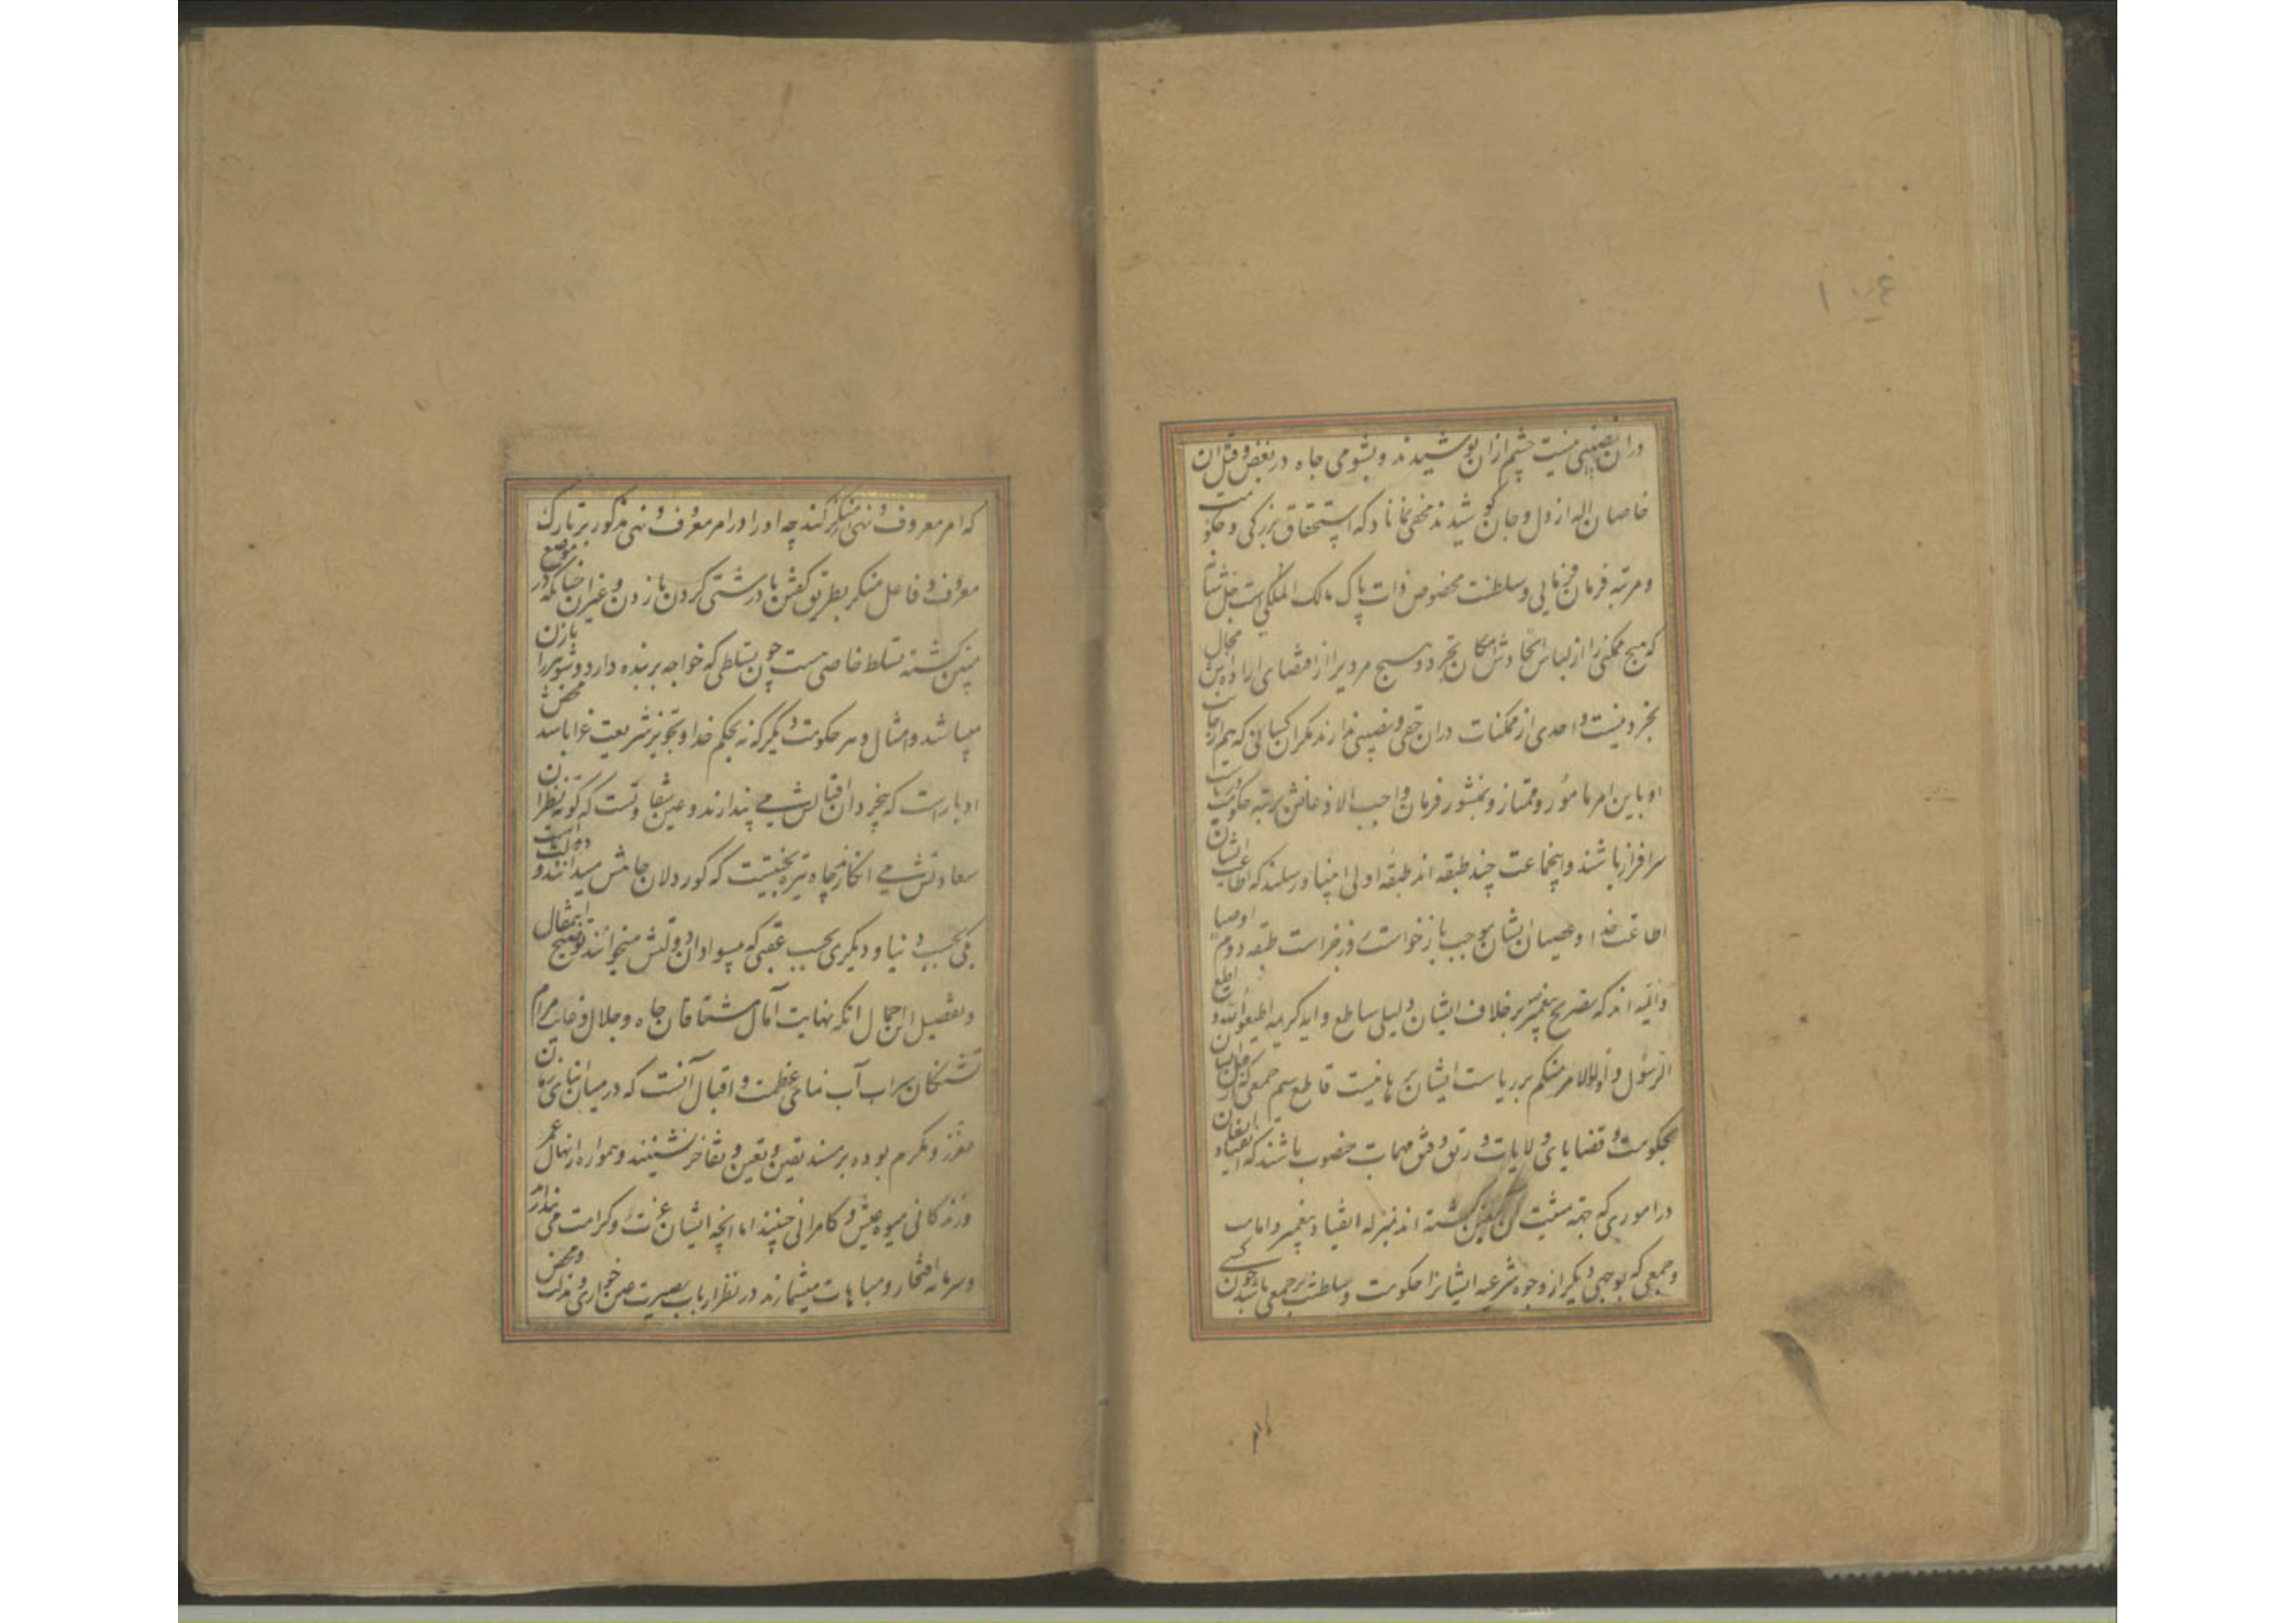 ۱۰۶
دران نصیبی نیست چشم ازان پوشیدند و بشومی جاه در بغض و قتل ان
خاصان اله از دل و جان کوشیدند مخفی نماناد که استحقاق بزرکی و حکومت
و مرتبه فرمان فرمایی و سلطنت مخصوص ذات پاک مالک الملکی است جل شانه
که هیچ ممکنی را از لباس اتحادش امکان تجرد و هیچ مردیرا از امضای اراده اش مجال
تجرد نیست و احدی از ممکنات دران حقی و نصیبی ندارند مکر ان کسانی که هم از جانب
او باین امر مامور و ممتاز و بمنشور فرمان واجب الاذعانش برتبه حکومت
سرافراز باشند و اینجماعت چند طبقه اند طبقه اولی انبیا و رسلند که اطاعت ایشان
اطاعت خدا و عصیان ایشان موجب بازخواست روز جزاست طبقه دوم اوصیا
و ائمه اند که تصریح پیغمبر بر خلافت ایشان دلیلی ساطع و ایه کریمه اطیعوا الله و اطیعوا
الرسول و اولوالامر منکم بر ریاست ایشان برهانیست قاطع سیم جمعی که از
بحکومت و قضایای ولایات و رتق و فتق مهمات منصوب باشند که انقیاد ایشان
در اموری که جهة مشیت ان معین کشته اند بمنزله انقیاد پیغمبر و امامست
و جمعی که بوجهی دیکر از وجوه شرعیه ایشانرا حکومت و سلطنت بر جمعی باشد چون کسی
که امر معروف و نهی از منکر کند چه او را در امر معروف و نهی مذکور بر تارک
معروف و فاعل منکر بطریق کفتن یا درشتی کردن یا زدن و غیر ان چنانکه در موضع
مبین کشته تسلط خاصی هست چون تسلطی که خواجه بر بنده دارد و شوهر را با زن
میباشد و امثال و هر حکومت دیکر که نه بحکم خدا و تجویز شریعت غرا باشد محض
ادبارست که بیخردان اقبالش می پندارند و عین شقاوتست که کوته نظران
سعادتش می انکارند چاه تیره بختیست که کوردلان جاهش میدانند و
یکی بحسب دنیا و دیکری بحسب عقبی که میسوادان دولتش میخوانند توضیح اینمقال
و تفصیل این اجمال انکه نهایت آمال مشتاقان جاه و جلال و غایت مرام
تشنکان سراب آب نمای عظمت و اقبال آنست که در میان ابنای زمان
معزز و مکرم بوده بر مسند تعین و تفاخر نشینند و همواره از نهال عمر
و زندکانی میوه عیش و کامرانی چینند اما انچه ایشان عزت و کرامت می پندارند
و سرمایه افتخار و مباهات میشمارند در نظر ارباب بصیرت عین خواری و محض مذلت